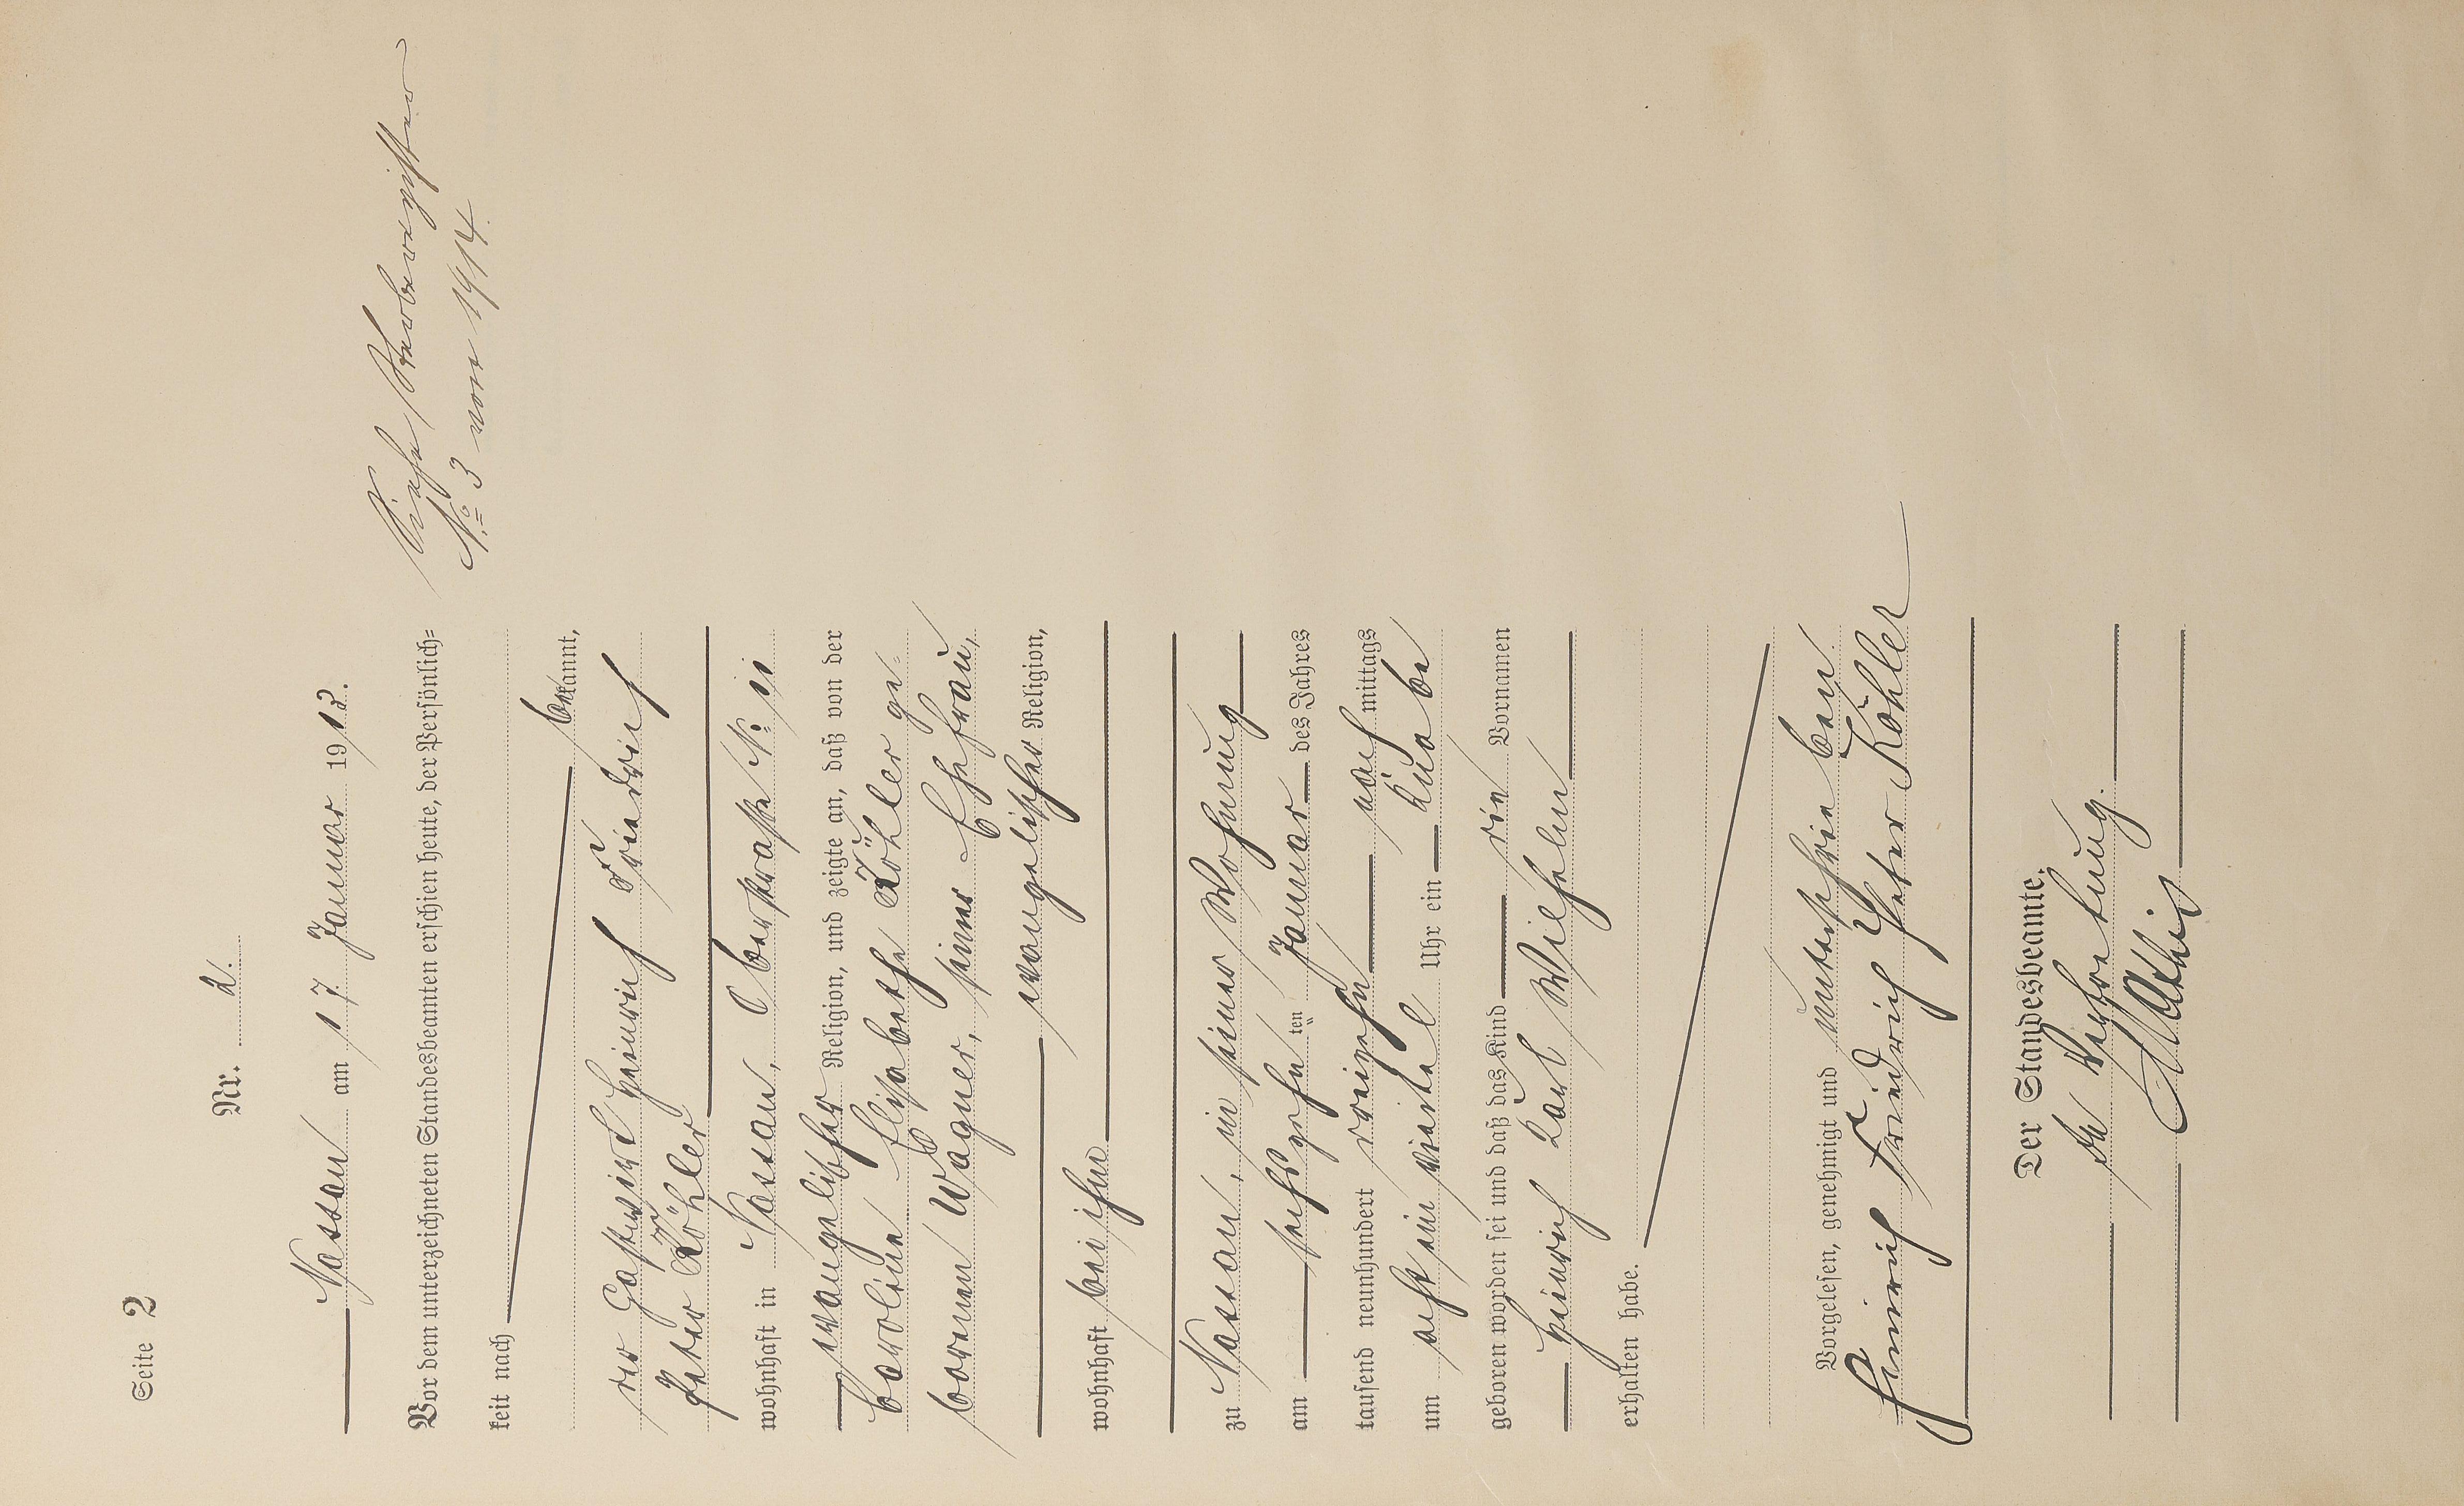 Seite 2
Nr. 2.
Nassau am 17. Januar 1913.
Vor dem unterzeichneten Standesbeamten erschien heute, der Persönlich-
keit nach
bekannt,
der Gastwirt Heinrich Friedrich
Peter Köhler
wohnhaft in Nassau, Oberstraße No 11
evangelischer Religion, und zeigte an, daß von der
Caroline Elisabethe Köhler ge-
borenen Wagner, seiner Ehefrau,
evangelischer Religion,
wohnhaft bei ihm
zu Nassau, in seiner Wohnung
am sechszehnten Januar des Jahres
tausend neunhundert dreizehn nachmittags
um acht ein viertel Uhr ein Knabe
geboren worden sei und daß das Kind die Vornamen
Heinrich Karl Wilhelm
erhalten habe.
Vorgelesen, genehmigt und unterschrieben
Heinrich Friedrich Peter Köhler
Der Standesbeamte.
In Vertretung.
Siehe Sterberegister
No 3 von 1914.